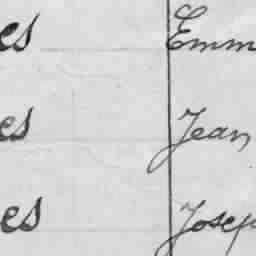 es Emm
es Jean
es Josep